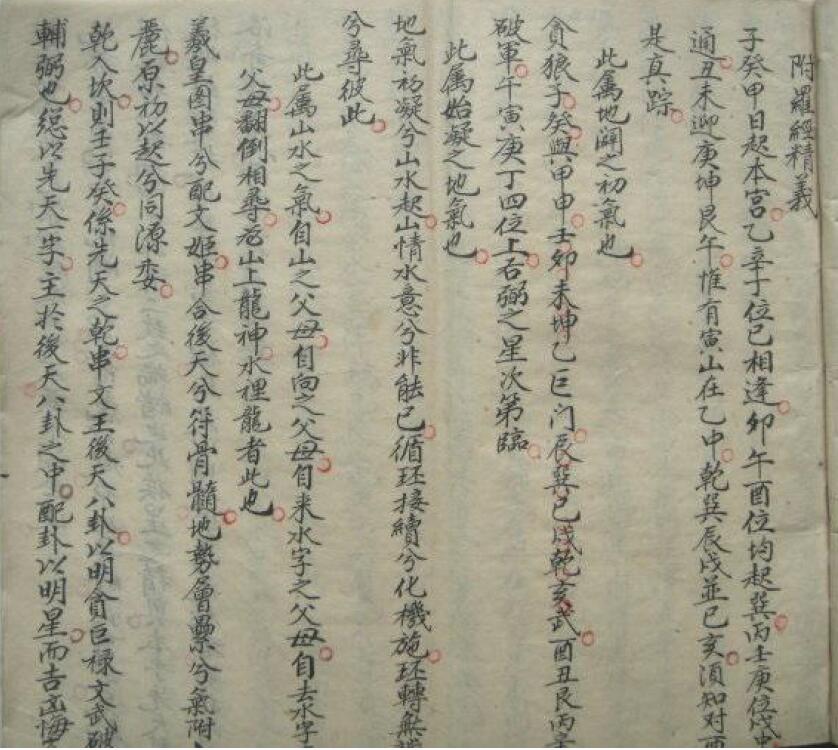 附羅經精義
子癸甲日起本宮乙辛丁位已相逢卯午酉位均起巽丙壬庚位戌
通丑未迎庚坤艮午惟有寅山在乙中乾巽辰戌並巳亥須知对
是真踪
此属地闢之初氣也
貪狼子癸與甲申壬卯未坤乙巨门辰巽巳戌乾亥武酉丑艮丙
破軍午寅庚丁四位上右弼之星次第臨
此属始凝之地氣也
地氣初凝兮山水起山情水意兮非能已循环接續兮化機施环轉無
兮尋彼此
此属山水之氣自山之父母自向之父母自来水字之父母自去水字
父母翻倒相尋為山上龍神水裡龍者此也
羲皇图串兮配文姬串合後天兮符骨髓地勢會纍兮氣附
麗原初以起兮同源委
乾入坎則壬子癸係先天之乾串文王後天八卦以明貪巨禄文武破
輔弼也總以先天一字主於後天八卦之中配卦以明星而吉凶悔